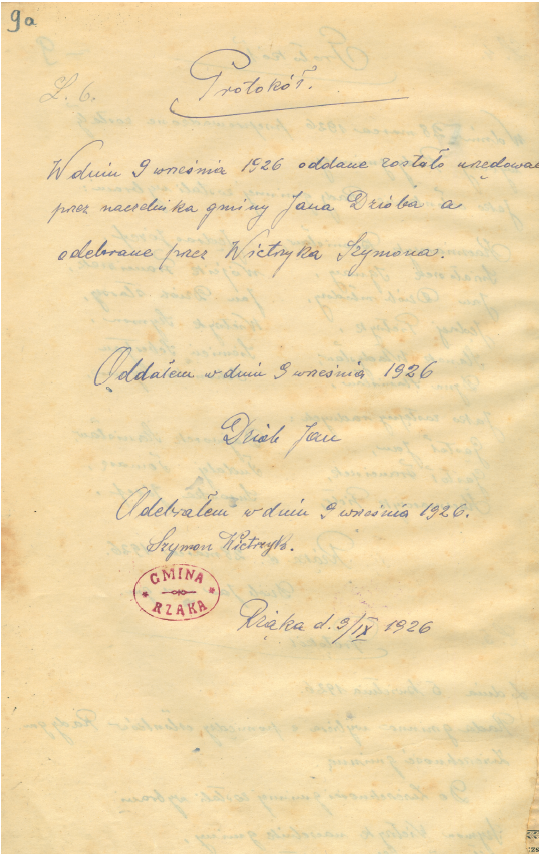 9a
L. 6.
Protokół.
W dniu 9 września 1926 oddane zostało urzędowan
przez naczelnika gminy Jana Dzióba a
odebrane przez Wietrzyka Szymona.
Oddałem w dniu 9 września 1926
Dziób Jan
Odebrałem w dniu 9 września 1926.
Szymon Wietrzyk.
GMINA
RZĄKA
Rząka d. 9/IX 1926